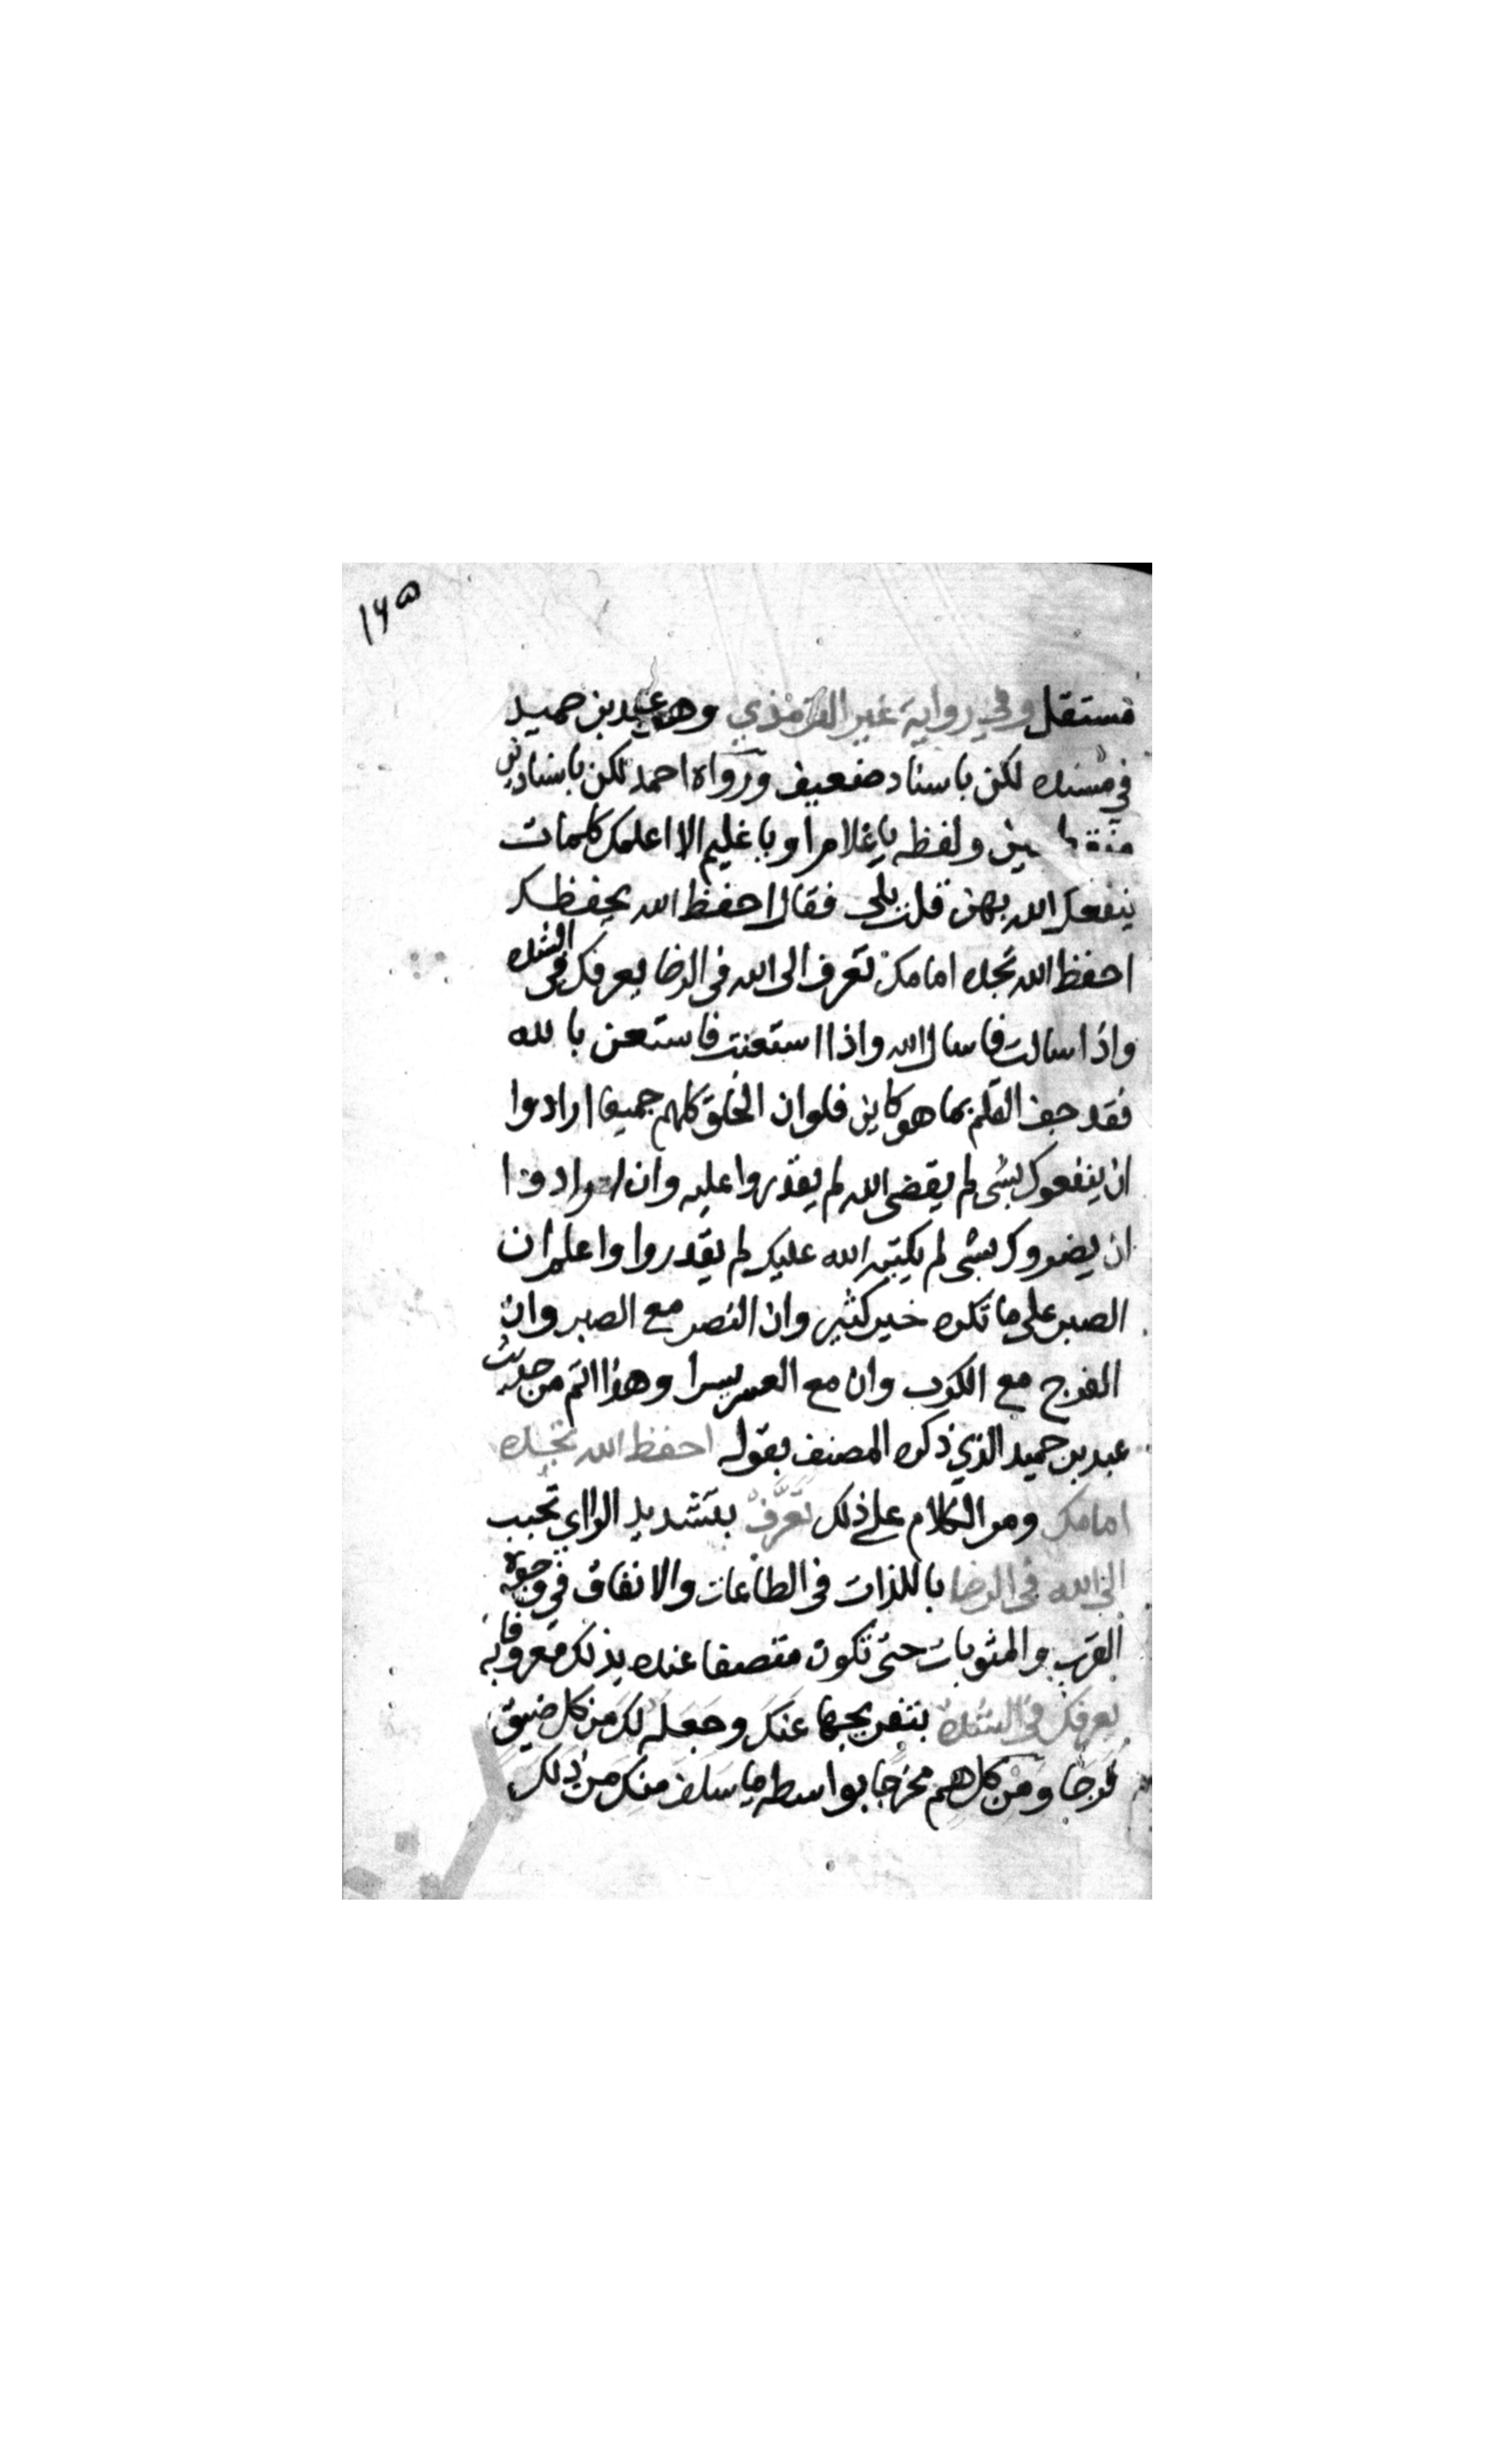 ١٦٥
مستقل وفي رواية غير الترمذي وهو عبد بن حميد
في مسنده لكن باسناد ضعيف ورواه احمد لكن باسنادين
منقطعين ولفظه يا غلام او يا غليم الا اعلمك كلمات
ينفعك الله بهن قلت بلى فقال احفظ الله يحفظك
احفظ الله تجده امامك تعرف الى الله في الرخا يعرفك في الشده
واذا سالت فاسال الله واذا استعنت فاستعن بالله
فقد جف القلم بما هو كاين فلو ان الخلق كلهم جميعا ارادوا
ان ينفعوك بشى لم يقضى الله لم يقدروا عليه وان ارادوا
ان يضروك بشى لم يكتبه الله عليك لم يقدروا واعلم ان
الصبر على ما تكره خير كثير وان النصر مع الصبر وان
الفرج مع الكرب وان مع العسر يسرا وهذا اتم من حديث
عبد بن حميد الذي ذكره المصنف بقوله احفظ الله تجده
امامك ومر الكلام على ذلك تَعَرَّفْ بتشديد الرا اي تحبب
الى الله في الرخا باللذات في الطاعات والانفاق في وجوه
القرب والمثوبات حتى تكون متصفا عنده بذلك معروفا به
يعرفك في الشده بتفريجها عنك وجعله لك من كل ضيق
فرجا ومن كل هم مخرجا بواسطه ما سلف منك من ذلك